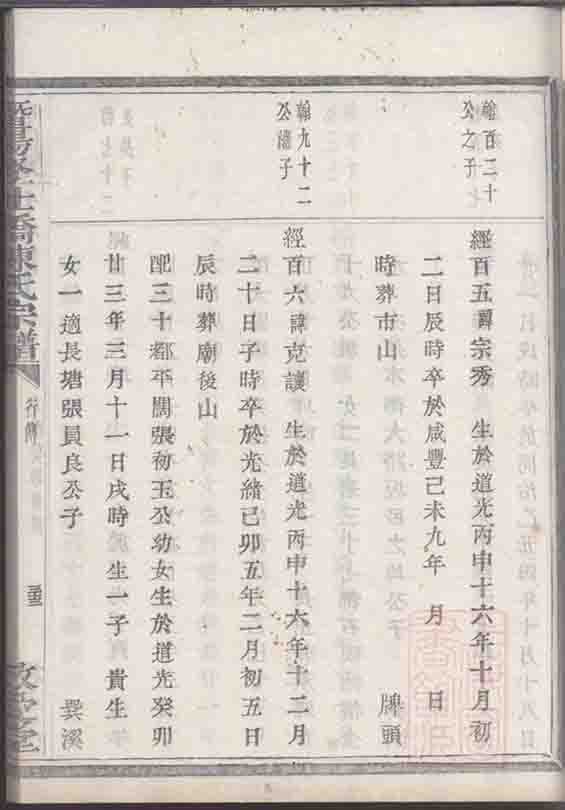 翰百三十
公之子
經百五諱宗秀　生於道光丙申十六年十月初
二日辰時卒於咸豐己未九年　月　日
時葬市山　牌頭
翰九十二
公繼子
經百六諱克讓　生於道光丙申十六年十二月
二十日子時卒於光緒己卯五年二月初五日
辰時葬廟後山
配三十都平闊張初玉公幼女生於道光癸卯
廿三年三月十一日戌時生一子貴生
女一適長塘張員良公子　巽溪
橋陳氏宗譜
行傳